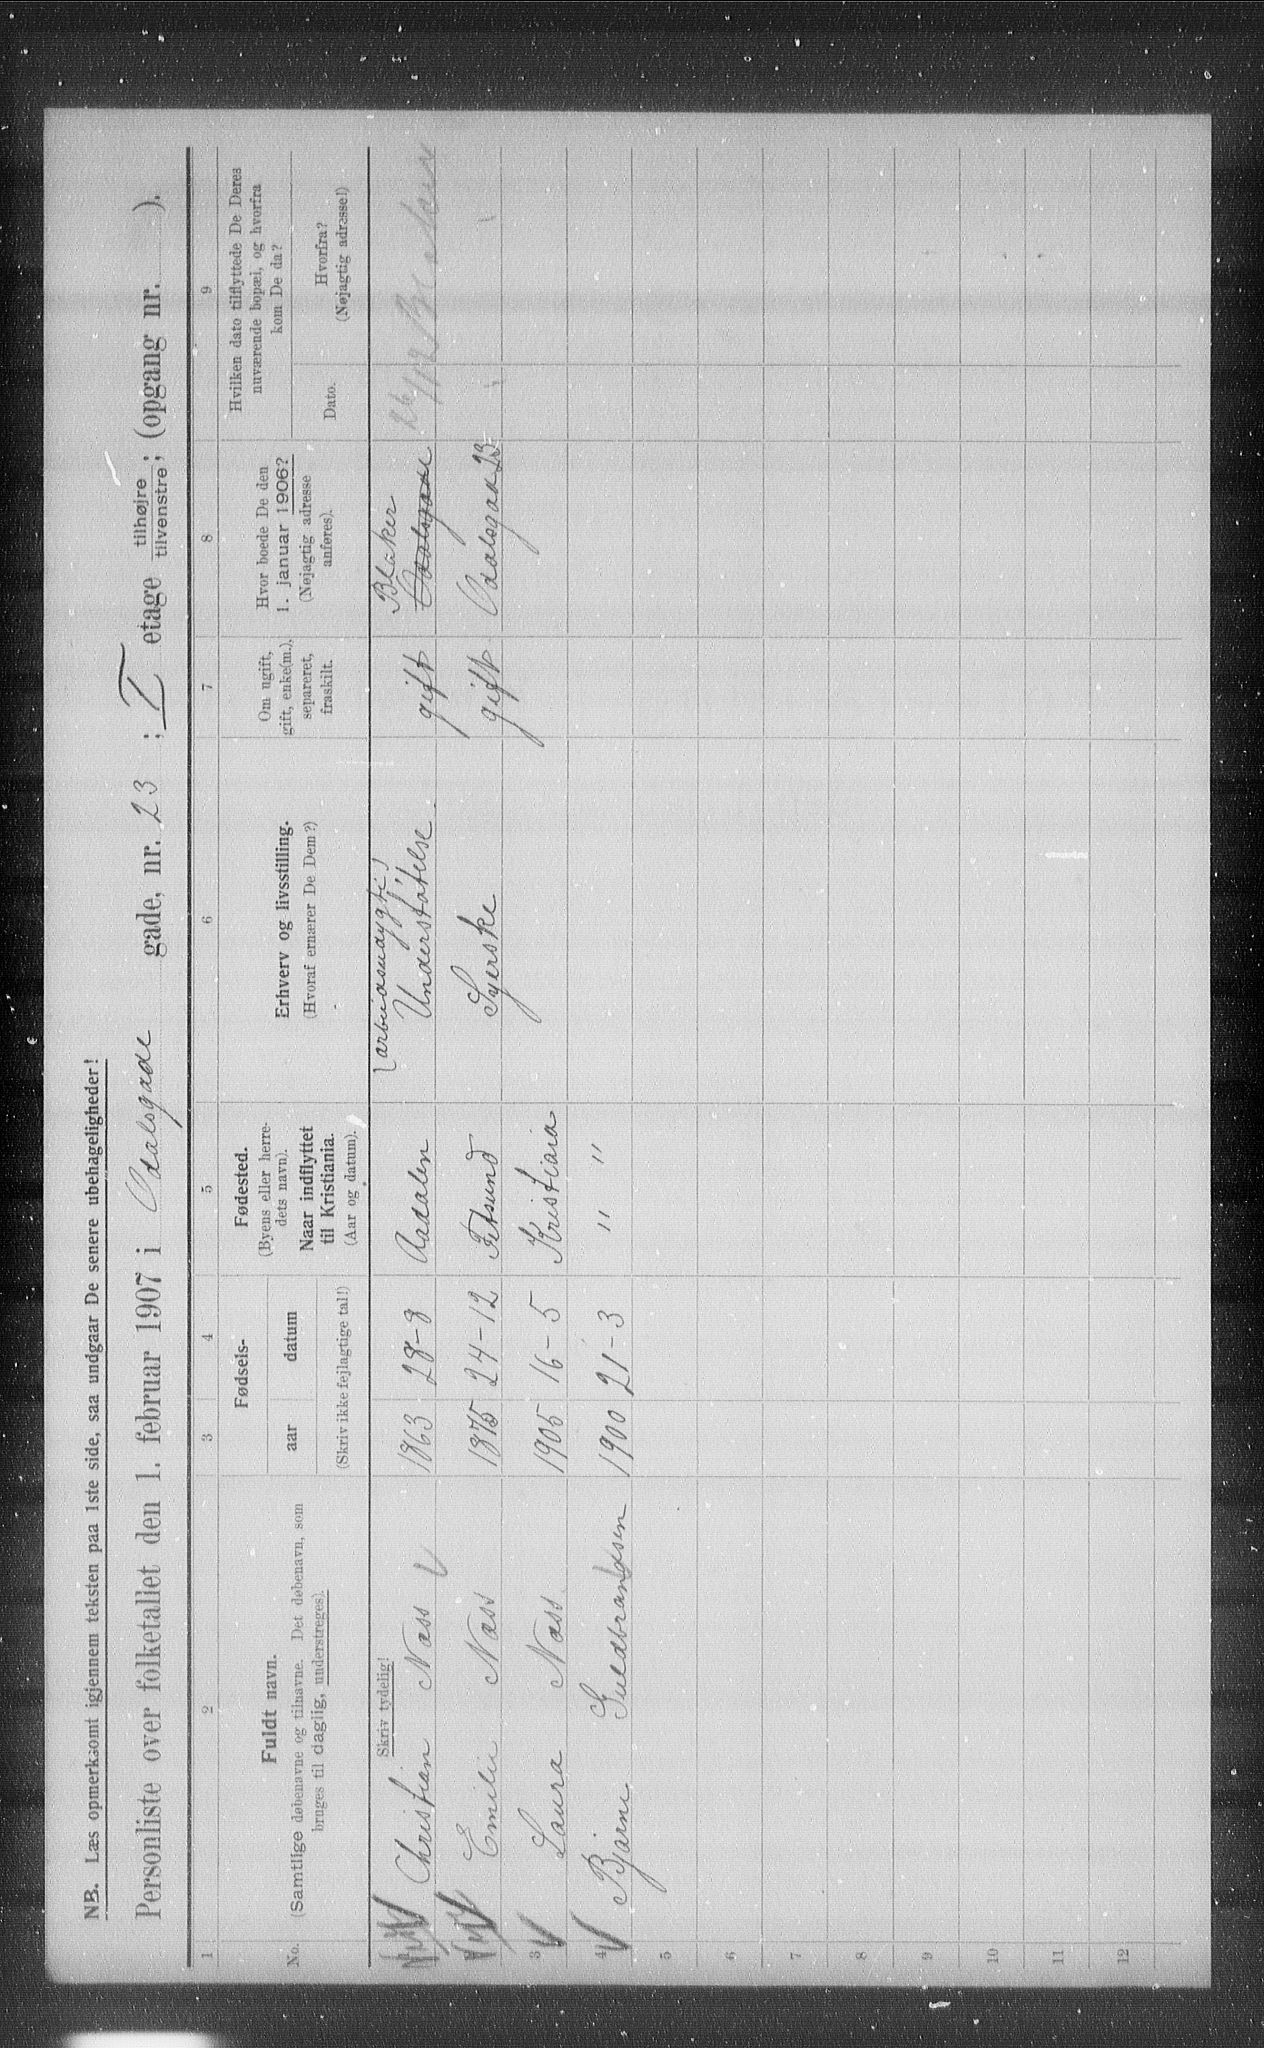 NB. Læs opmerksomt igjennem teksten paa 1ste side, saa undgaar De senere ubehageligheder!
Personliste over folketallet den 1. februar 1907 i Odalsgade gade, nr. 23 ; I etage tilhøjre tilvenstre ; (opgang nr. ).
1 2 3 4 5 6 7 8 9
No.
Fuldt navn.
(Samtlige døbenavne og tilnavne. Det døbenavn, som
bruges til daglig, understreges).
Fødsels-
aar datum
(Skriv ikke fejlagtige tal!)
Fødested.
(Byens eller herre-
dets navn).
Naar indflyttet
til Kristiania.
(Aar og datum).
Erhverv og livsstilling.
(Hvoraf ernærer De Dem?)
Om ugift,
gift, enke(m.),
separeret,
fraskilt.
Hvor boede De den
1. januar 1906?
(Nøjagtig adresse
anføres).
Hvilken dato tilflyttede De Deres
nuværende bopæl, og hvorfra
kom De da?
Dato.
Hvorfra?
(Nøjagtig adresse!)
Skriv tydelig!
(arbeidsudygtig) Blaker
Christian Næss 1863 28-8 Aadalen Understøtelse gift Odalsgade
Emilie Næss 1875 24-12 Fetsund Syerske gift Odalsgad 23
3 Laura Næss 1905 16-5 Kristiania
4 Bjarne Guldbrandsen 1900 21-3 " "
5
6
7
8
9
10
11
12